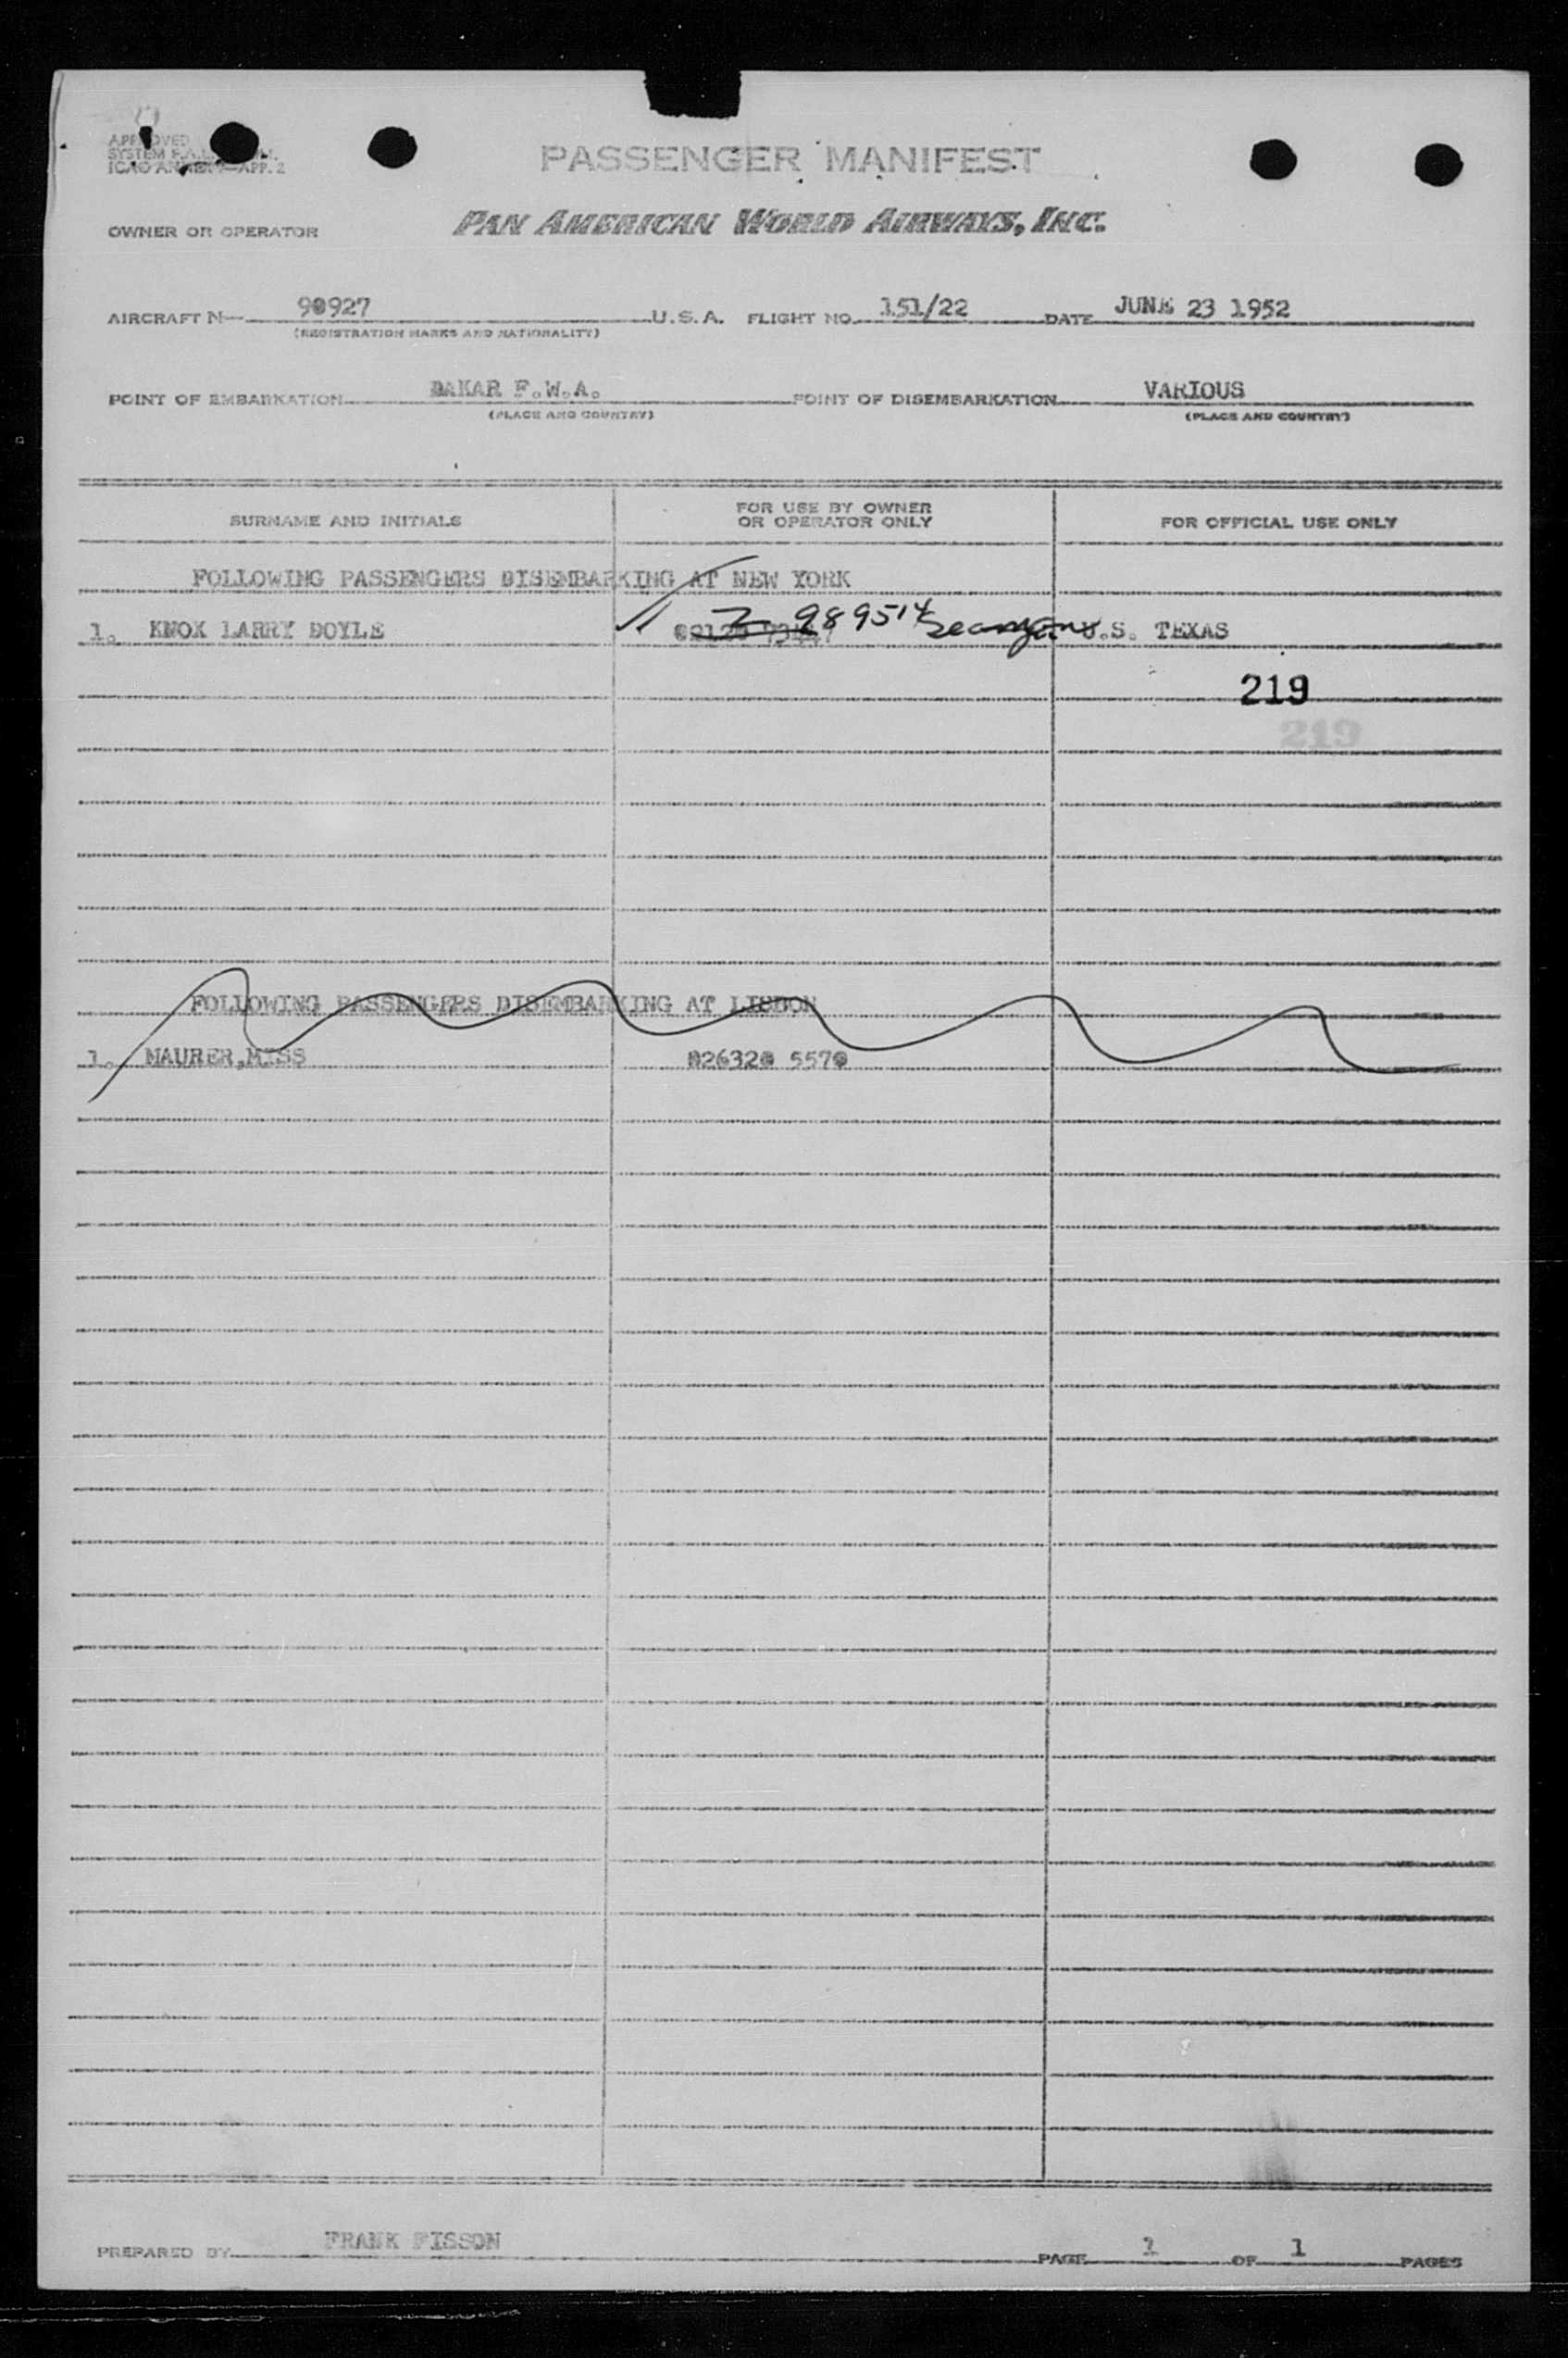 APPROVED
SYSTEM
ICAO APP. 2
PASSENGER MANIFEST
OWNER OR OPERATOR PAN AMERICAN WORLD AIRWAYS, INC.
AIRCRAFT N— 90927 U.S.A. FLIGHT NO. 151/22 DATE JUNE 23 1952
(REGISTRATION MARKS AND NATIONALITY)
POINT OF EMBARKATION DAKAR F.W.A. POINT OF DISEMBARKATION VARIOUS
(PLACE AND COUNTRY) (PLACE AND COUNTRY)
SURNAME AND INITIALS FOR USE BY OWNER OR OPERATOR ONLY FOR OFFICIAL USE ONLY
FOLLOWING PASSENGERS DISEMBARKING AT NEW YORK
1. KNOX LARRY DOYLE Z 989514 Seaman U.S. TEXAS
219
219
FOLLOWING PASSENGERS DISEMBARKING AT LISBON
1. MAURER,MISS 026320 5570
PREPARED BY FRANK PAGE 1 OF 1 PAGES